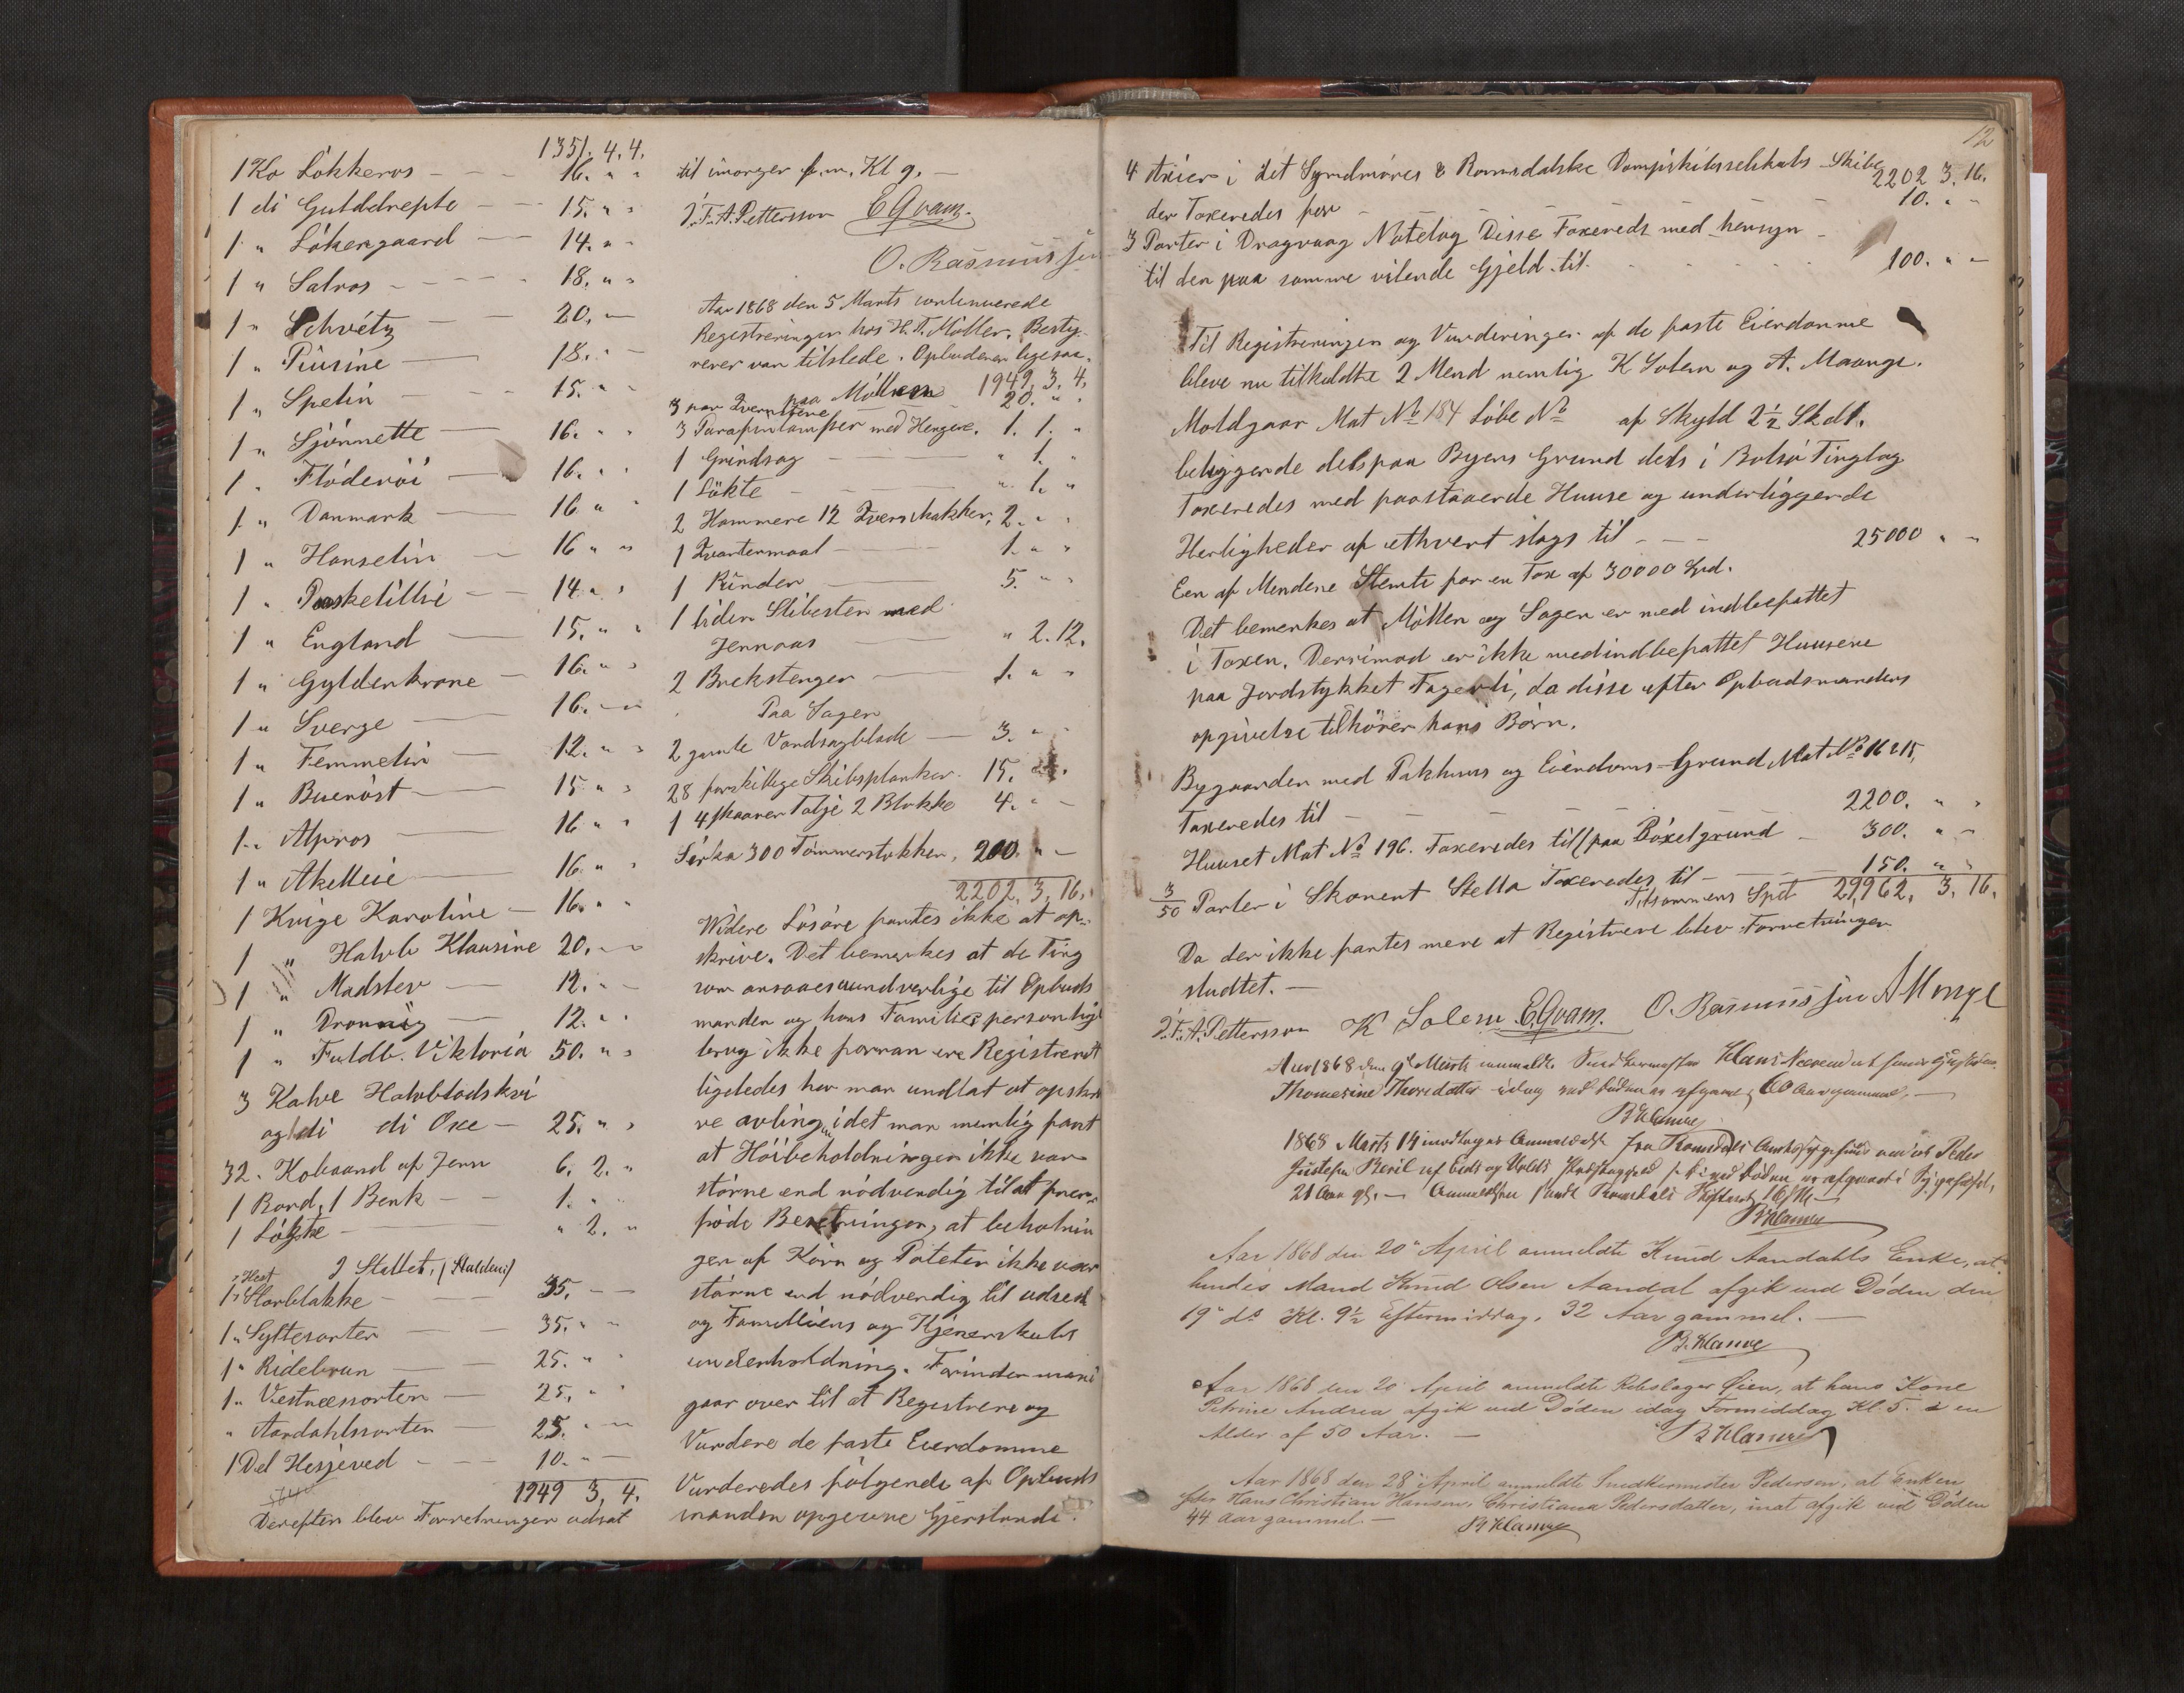 1351. 4. 4.
1 Ko Lökkeros - - 16. " "
1 di Gulddrepte - - 15. " "
1 " Lökengaard - 14. " "
1 " Salros - - - 18. " "
1 " Schvétz - - 20. " -
1 " Piusine - 18. " -
1 " Spelin - - 15. " "
1 " Sjönnette - 16. " "
1 " Flöderöi - 16. " "
1 " Danmark - 16. " "
1 " Hanselin - 16 " "
1 " Paaskelilli - - 14. " "
1 " England - 15. " "
1 " Gyldenkrone - 16. " "
1 " Sverge - 16. " "
1 " Femmelin - 12. " "
1 " Buenöst - 15 " "
1 " Alpros - 16 " "
1 " Akelleie - 16. " "
1 Kvige Karoline - 16. " "
1 " Halvb Klausine 20. " "
1 " Madslev - 12. " -
1 " Dronnig - 12. " "
1 " Fuldb. Viktoria 50. " "
3 Kalve Halvblodskvi
og 1 di di Oxe - 25. " "
32. Kobaand af Jern 6. 2. "
1 Bord, 1 Benk - - 1. " "
1 Løgte - " 2. "
I Stallet, (Stalden)
1 " Hest Storblakke - - 35. - -
1 " Syltesorten - - 35. " "
1 " Ridebrun - - 25. " "
1 " Vestnessorten - 25. " "
" Aandahlssorten - 25. " "
1 Del Hesjeved - - 10. " -
1949 3, 4.
Derefter blev Forretningen udsat
til imorgen f.m. Kl 9. -
J. F. A. Pettersson E Qvam.
O. Rasmussen
Aar 1868 den 5 Marts continuerede
Registreringen hos H. T. Möller. Besty-
rerer var tilstede. Opbuderen ligesaa.
paa Möllen 1949, 3, 4.
3 par Kvernstene 20. " "
3 Parafinlamper med Hengere. 1. 1. "
1 Grindsag - - " 1. "
1 Lökte - - " 1. "
2 Hammere 12 Kvernhakker, 2. " "
1 Kvartermaal - 1. " "
1 Rinder - 5. " "
1 liden Slibesten med
Jernaas - " 2. 12.
2 Brekstenger - 1. " "
Paa Sagen
2 gamle Vandsagblade - 3. " "
28 forskillige Skibsplanker. 15. " "
1 4 skaaren Talje 2 Blokke 4. " -
Sirka 300 Tömmerstokker, 200. " -
2202, 3, 16.
Widere Lösöre fantes ikke at op-
skrive. Det bemerkes at de Ting
som ansaaes uundverlige til Opbuds
manden og hans Families personlige
brug ikke forran ere Registreret
ligeledes har man undlat at opskri
ve avling, idet man nemlig fant
at Höibeholdningen ikke var
störne end nödvendig til at frem-
föde Besetningen, at beholnin
gen af Korn og Poteter ikke var
störne end nödvendig til udsed
og Familliens og Tjenerskabets
underholdning. Forinden man
gaar over til at Registrere og
Vurdere de faste Eiendomme
Vurderedes følgende af Opbuds
manden opgivne Gjenstande.
12
4 Aktier i det Syndmöres & Romsdalske Dampskibsselskabs Skibe 2202 3. 16.
der Taxeredes for - - - 10. " "
3 Parter i Dragvaag Notelag Disse Taxeredes med hensyn -
til den paa samme vilende Gjeld til. - - - 100. " "
Til Registreringen og Vurderingen af de faste Eiendomme
bleve nu tilkaldte 2 Mend nemlig K Solem og A. Maange.
Moldgaar Mat No 184 Löbe No af Skyld 2½ Skdl.
beliggende dels paa Byens Grund dels i Bolsö Tinglag
Taxeredes med paastaaende Huuse og underliggende
Herligheder af ethvert slags til - - - 25000 " "
Een af Mendene Stemte for en Tax af 30000 Spd.
Det bemerkes at Möllen og Sagen er med indbefattet
i Taxen. Derimod er ikke medindbefattet Huusene
paa Jordstykket Fagerli, da disse efter Opbudsmandens
opgivelse tilhörer hans Börn.
Bygaarden med Pakhuus og Eiendoms-Grund Mat No 16 & 15,
Taxeredes til - - - - 2200. " "
Huuset Mat No 196. Taxeredes till (paa Böxelgrund - 300. " "
3/50 Parter i Skonert Stella Taxeredes til - - 150. " "
Tilsammens Spd 29,962, 3, 16.
Da der ikke fantes mere at Registrere blev Forretningen
sluttet. -
J. F. A. Pettersson K Solem E. Qvam. O. Rasmussen A Monge
Aar 1868 den 9de Marts anmeldte Snedkermester Hans at hans
Thomesine Thoresdatter idag ved Døden er afgaaet, 60 Aar gammel. -
B Klamre
1868 Marts 14 modtoges Anmeldelse fra Romsdals Amtssygehuus om at Peder
Justesen af Eids og Volds Præstegjeld ved Døden er afgaaet i Sygehuset,
21 Aar gl. - Anmeldelsen sendt Romsdals
B Klamre
Aar 1868 den 20de April anmeldte Knud Aandahls Enke, at
hendes Mand Knud Olsen Aandal afgik ved Döden den
19de ds Kl. 9½ Eftermiddag, 32 Aar gammel. -
B. Klamre
Aar 1868 den 20 April anmeldte Rebslager Øien, at hans Kone
Petrine Andrea afgik ved Döden idag Formiddag Kl. 5. i en
Alder af 50 Aar. -
B Klamre
Aar 1868 den 28 April anmeldte Snedkermester Pedersen, at Enken
efter Hans Christian Hansen, Christiana Pedersdatter, inat afgik ved Döden
44 Aar gammel. -
B Klamre